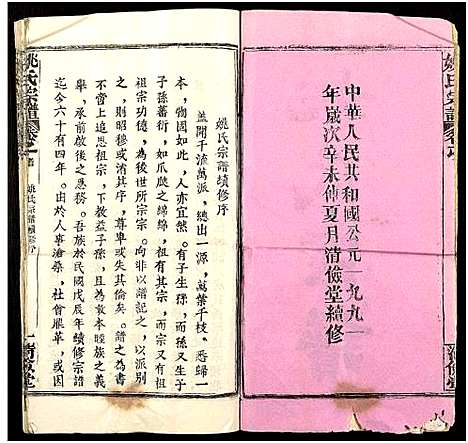 姚氏宗譜卷
中華人民共和國公元一九九一
年歲次辛未仲夏月清儉堂續修
清儉堂
姚氏宗譜續修序
蓋聞千流萬派，總出一源，萬葉千枝，悉歸一
本，物固如此，人亦宜然。有子生孫，而孫又生
子孫蕃衍，如爪瓞之綿綿，祖有其宗，而宗有其
祖宗功德，為後世所宗。向非以譜記之，以派別
之，則昭穆或淆其序，尊卑或失其倫矣。譜之為書
不當上追思祖宗，下教益子孫，且為敦本睦族之義
舉，承前啟後之愚務。吾族於民國戊辰年續修宗譜
迄今六十有四年。由於人事滄桑，社會嚴革，或因
姚氏宗譜卷首
姚氏宗譜續修序
一
清儉堂